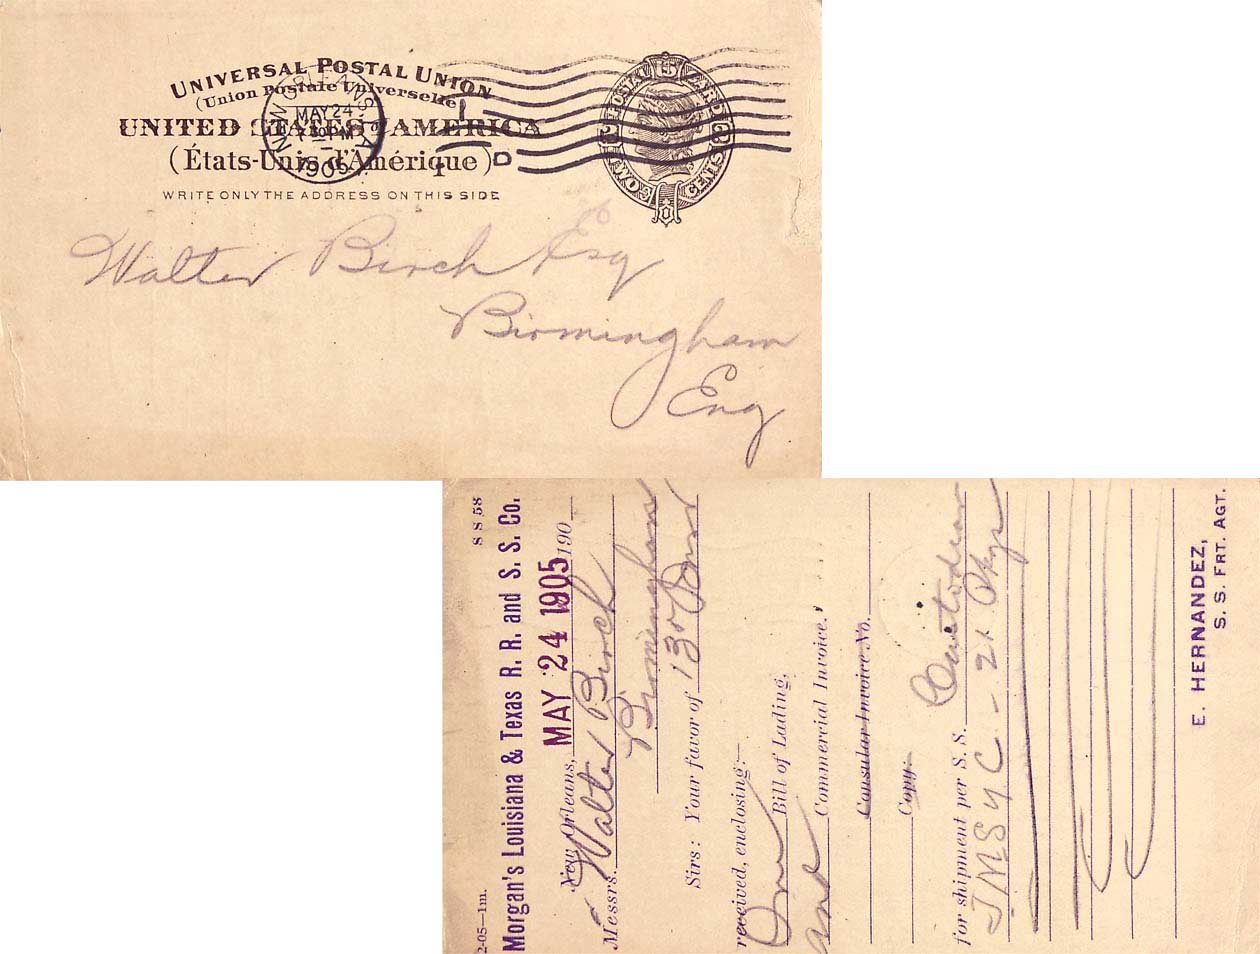 UNIVERSAL POSTAL UNION
(Union Postale Universelle)
UNITED STATES OF AMERICA
(États-Unis d'Amérique)
WRITE ONLY THE ADDRESS ON THIS SIDE
NEW ORLEANS, LA.
MAY 24
1905
POSTAL CARD
TWO CENTS
Walter Birch Esq
Birmingham
Eng
2-05—1m. S S 58
Morgan's Louisiana & Texas R. R. and S. S. Co.
MAY 24 1905
New Orleans, 190
Messrs. Walter Birch
Birmingham
Sirs: Your favor of 13
received, enclosing:—
One Bill of Lading,
and Commercial Invoice,
Consular Invoice No.
Copy:
for shipment per S. S.
J M S y C. - 21 Pkgs
E. HERNANDEZ,
S. S. FRT. AGT.